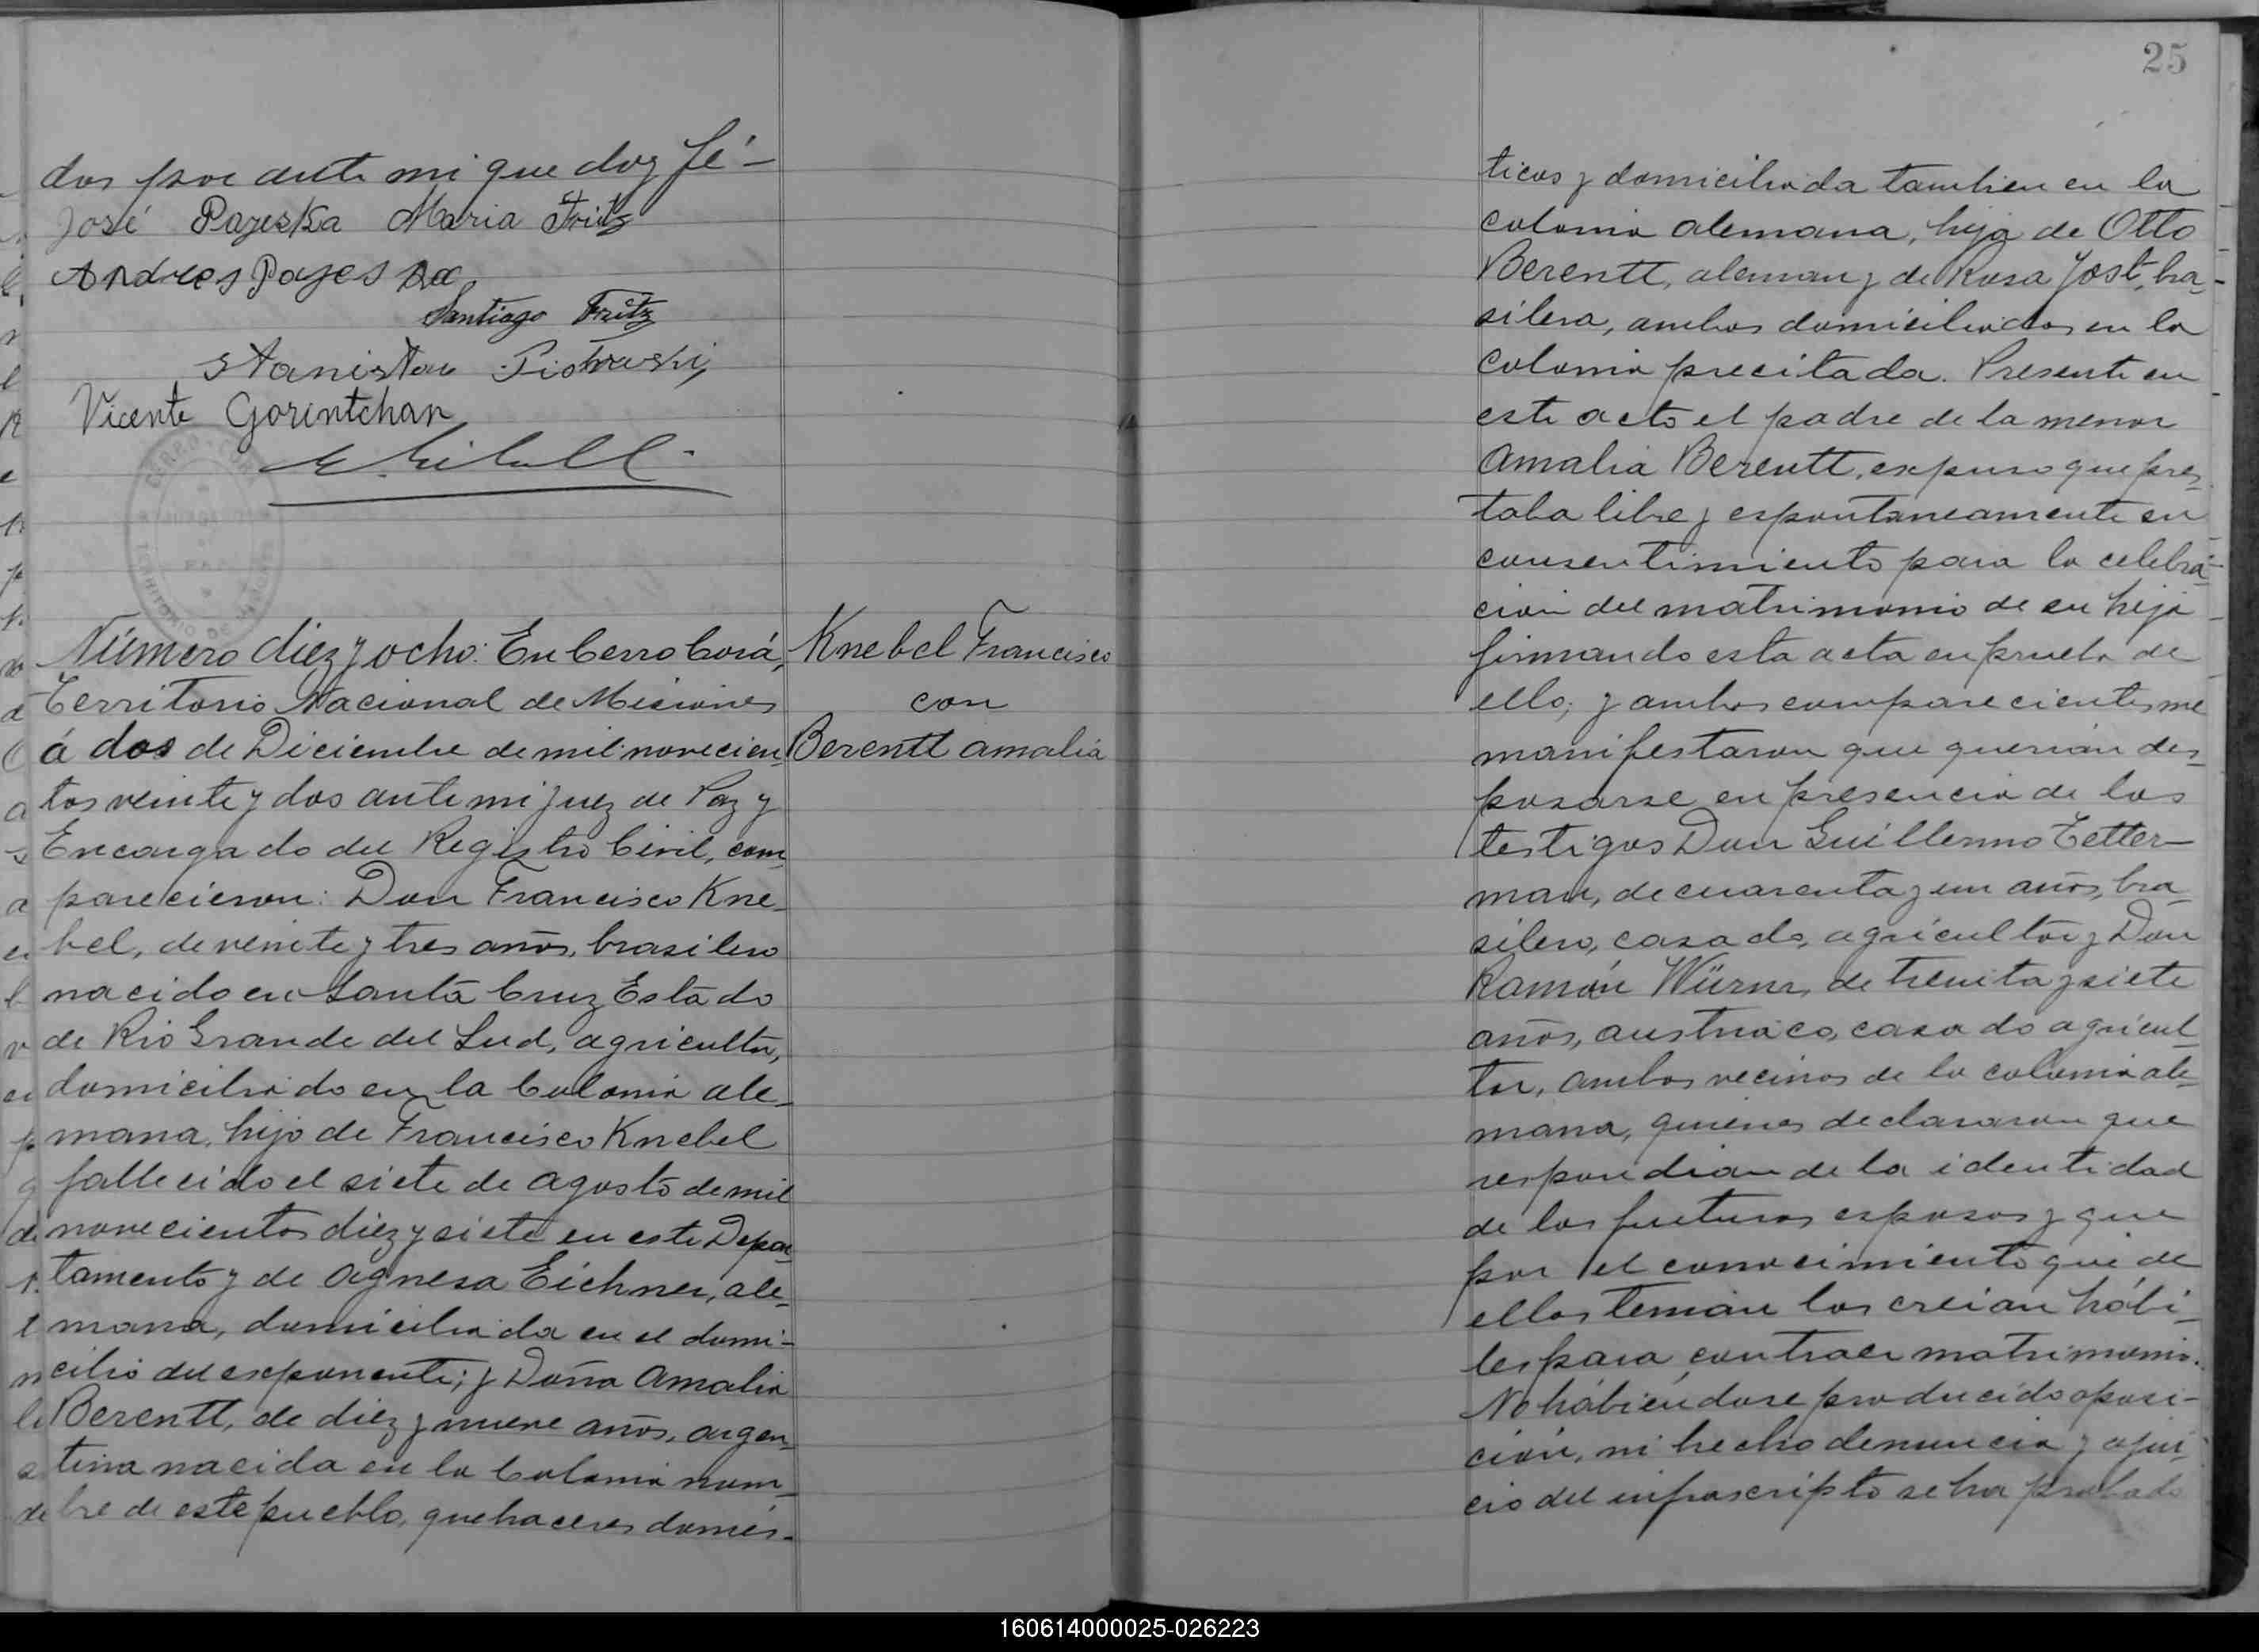 dos por ante mi que doy fé—
José Pazeska Maria Fritz
Andres Payeska
Santiago Fritz
Stanislau Piotrwski
Vicente Gorintchan
CERRO-CORÁ
TERRITORIO DE MISIONES
Número diez y ocho: En Cerro Corá,
Territorio Nacional de Misiones
á dos de Diciembre de mil novecien
tos veinte y dos ante mi Juez de Paz y
Encargado del Registro Civil, com
parecieron: Don Francisco Kne-
bel, de veinte y tres años, brasilero
nacido en Santa Cruz Estado
de Rio Grande del Sud, agricultor,
domiciliado en la Colonia ale-
mana, hijo de Francisco Knebel
fallecido el siete de agosto de mil
novecientos diez y siete en este Depar
tamento y de Agnesa Eichner, ale-
mana, domiciliada en el domi-
cilio del exponente; y Doña Amalia
Berentt, de diez y nueve años, argen-
tina nacida en la Colonia nom-
bre de este pueblo, quehaceres domes-
Knebel Francisco
con
Berentt Amalia
25
ticos y domiciliada tambien en la
colonia alemana, hija de Otto
Berentt, aleman y de Rosa Jost, bra-
silera, ambos domiciliados en la
colonia precitada. Presente en
este acto el padre de la menor
Amalia Berentt, expuso que pres-
taba libre y espontaneamente su
consentimiento para la celebra-
ción del matrimonio de su hija
firmando esta acta en prueba de
ello; y ambos comparecientes me
manifestaron que querian des-
posarse en presencia de los
testigos Don Guillermo Tetter-
man, de cuarenta y un años, bra-
silero, casado, agricultor y Don
Ramón Würnr, de treinta y siete
años, austriaco, casado agricul-
tor, ambos vecinos de la colonia ale-
mana, quienes declararon que
respondian de la identidad
de los futuros esposos y que
por el conocimiento que de
ellos tenian los creian hábi-
les para contraer matrimonio.
No habiéndose producido oposi-
ción, ni hecho denuncia y ajui-
cio del infrascripto se ha probado
160614000025-026223